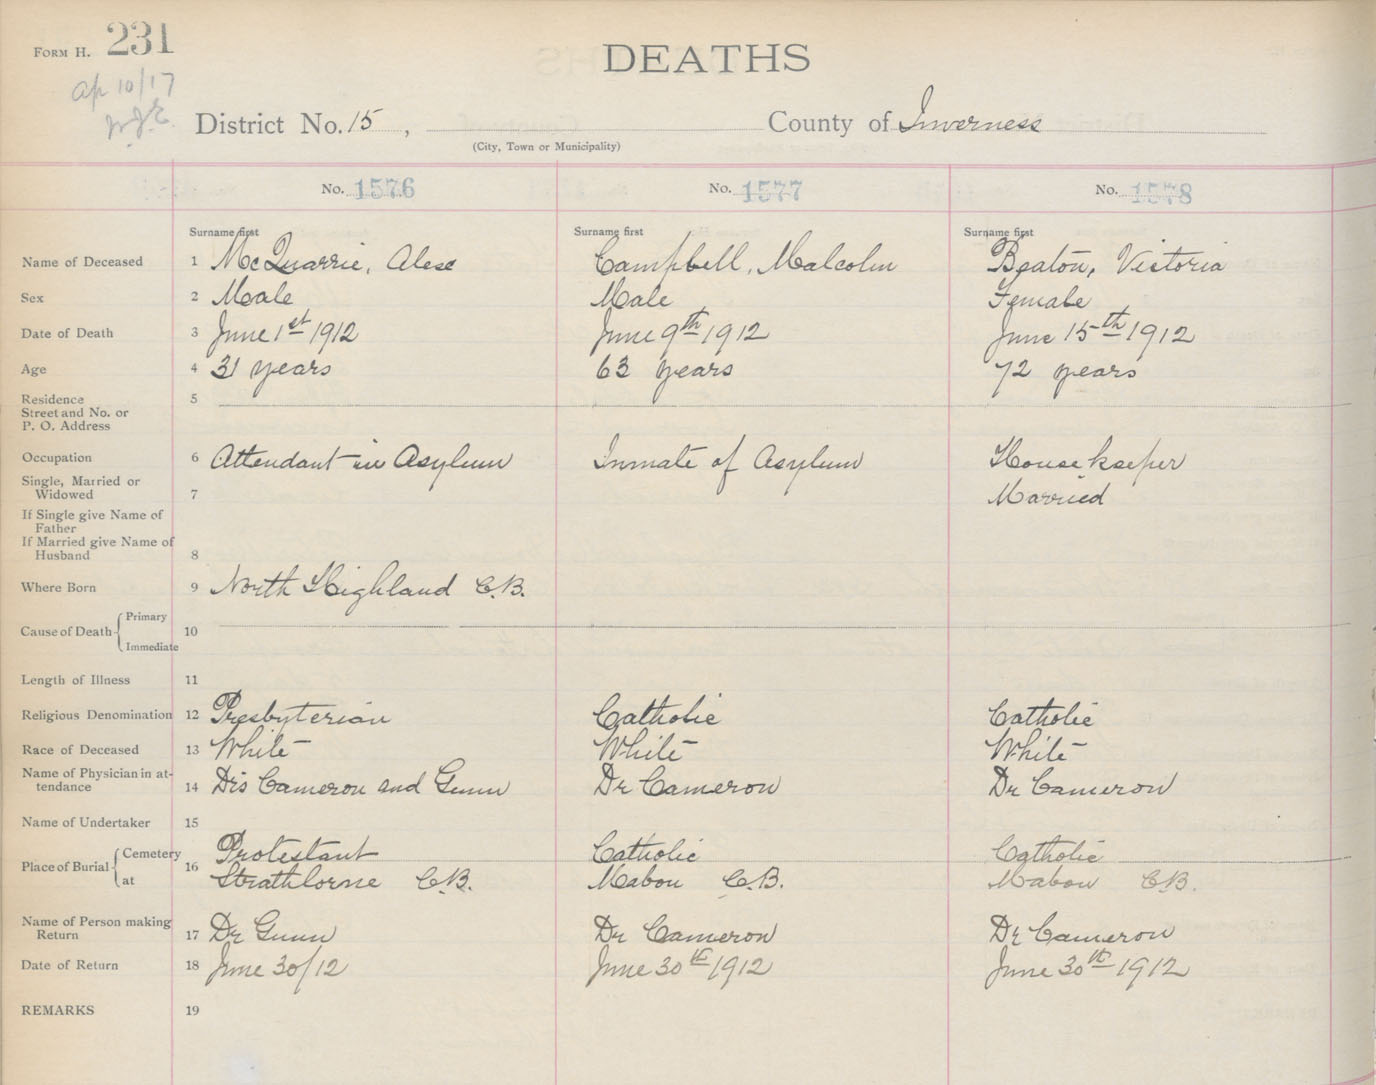 FORM H. 231
DEATHS
Ap 10/17
District No. 15 , County of Inverness
(City, Town or Municipality)
No. 1576 No. 1577 No. 1578
Surname first Surname first Surname first
Name of Deceased 1 McQuarrie, Alex Campbell, Malcolm Beaton, Victoria
Sex 2 Male Male Female
Date of Death 3 June 1st 1912 June 9th 1912 June 15th 1912
Age 4 31 years 63 years 72 years
Residence 5
Street and No. or
P. O. Address
Occupation 6 Attendant in Asylum Inmate of Asylum Housekeeper
Single, Married or
Widowed 7 Married
If Single give Name of
Father
If Married give Name of
Husband 8
Where Born 9 North Highland C.B.
Primary
Cause of Death 10
Immediate
Length of Illness 11
Religious Denomination 12 Presbyterian Catholic Catholic
Race of Deceased 13 White White White
Name of Physician in at-
tendance 14 Drs Cameron and Gunn Dr Cameron Dr Cameron
Name of Undertaker 15
Cemetery Protestant Catholic Catholic
Place of Burial 16
at Strathlorne C.B. Mabou C.B. Mabou C.B.
Name of Person making
Return 17 Dr Gunn Dr Cameron Dr Cameron
Date of Return 18 June 30/12 June 30th 1912 June 30th 1912
REMARKS 19